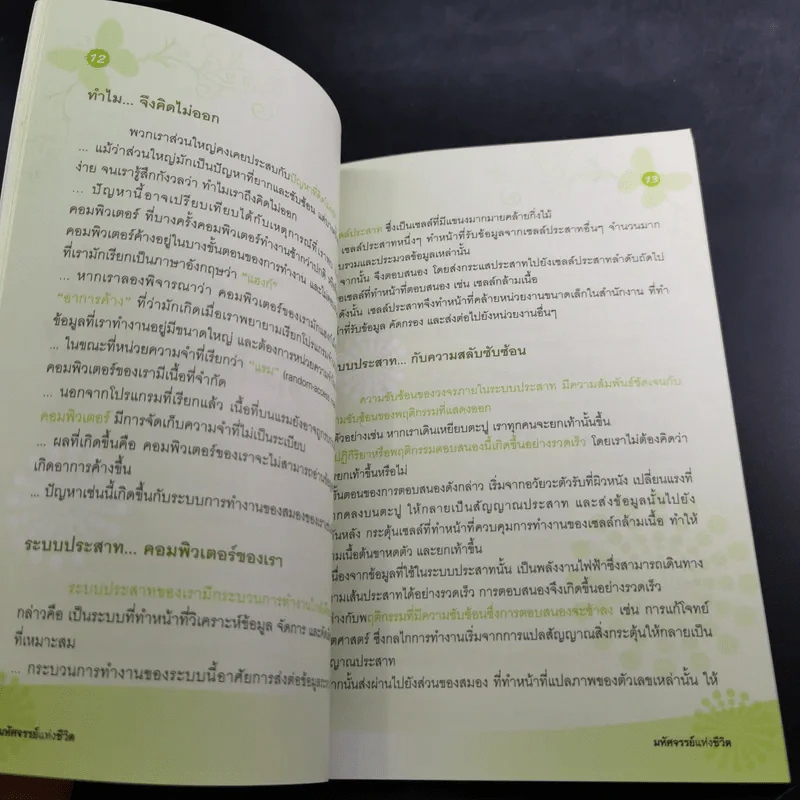 12
ทำไม... จึงคิดไม่ออก
พวกเราส่วนใหญ่คงเคยประสบกับ
... แม้ว่าส่วนใหญ่มักเป็นปัญหาที่ยากและซับซ้อน
ง่าย จนเรารู้สึกกังวลว่า ทำไมเราถึงคิดไม่ออก
... ปัญหานี้อาจเปรียบเทียบได้กับเหตุการณ์ที่
คอมพิวเตอร์ ที่บางครั้งคอมพิวเตอร์ทำงานช้ากว่าปกติ
คอมพิวเตอร์ค้างอยู่ในบางขั้นตอนของการทำงาน
ที่เรามักเรียกเป็นภาษาอังกฤษว่า "แฮงก์"
... หากเราลองพิจารณาว่า คอมพิวเตอร์ของเรามัก
"อาการค้าง" ที่ว่ามักเกิดเมื่อเราพยายามเรียกโปรแกรม
ข้อมูลที่เราทำงานอยู่มีขนาดใหญ่ และต้องการหน่วย
... ในขณะที่หน่วยความจำที่เรียกว่า "แรม" (random-access
คอมพิวเตอร์ของเรามีเนื้อที่จำกัด
... นอกจากโปรแกรมที่เรียกแล้ว เนื้อที่บนแรมยังอาจถูก
คอมพิวเตอร์ มีการจัดเก็บความจำที่ไม่เป็นระเบียบ
... ผลที่เกิดขึ้นคือ คอมพิวเตอร์ของเราจะไม่สามารถ
เกิดอาการค้างขึ้น
... ปัญหาเช่นนี้เกิดขึ้นกับระบบการทำงานของสมองของเรา
ระบบประสาท... คอมพิวเตอร์ของเรา
ระบบประสาทของเรามีกระบวนการทำงาน
กล่าวคือ เป็นระบบที่ทำหน้าที่วิเคราะห์ข้อมูล จัดการ และ
ที่เหมาะสม
... กระบวนการทำงานของระบบนี้อาศัยการส่งต่อข้อมูล
มหัศจรรย์แห่งชีวิต
13
ลล์ประสาท ซึ่งเป็นเซลล์ที่มีแขนงมากมายคล้ายกิ่งไม้
เซลล์ประสาทหนึ่งๆ ทำหน้าที่รับข้อมูลจากเซลล์ประสาทอื่นๆ จำนวนมาก
บรวมและประมวลข้อมูลเหล่านั้น
จากนั้น จึงตอบสนอง โดยส่งกระแสประสาทไปยังเซลล์ประสาทลำดับถัดไป
อเซลล์ที่ทำหน้าที่ตอบสนอง เช่น เซลล์กล้ามเนื้อ
ดังนั้น เซลล์ประสาทจึงทำหน้าที่คล้ายหน่วยงานขนาดเล็กในสำนักงาน ที่ทำ
าที่รับข้อมูล คัดกรอง และส่งต่อไปยังหน่วยงานอื่นๆ
บบประสาท... กับความสลับซับซ้อน
ความซับซ้อนของวงจรภายในระบบประสาท มีความสัมพันธ์ชัดเจนกับ
ามซับซ้อนของพฤติกรรมที่แสดงออก
ตัวอย่างเช่น หากเราเดินเหยียบตะปู เราทุกคนจะยกเท้านั้นขึ้น
ปฏิกิริยาหรือพฤติกรรมตอบสนองนี้เกิดขึ้นอย่างรวดเร็ว โดยเราไม่ต้องคิดว่า
ยกเท้าขึ้นหรือไม่
ั้นตอนของการตอบสนองดังกล่าว เริ่มจากอวัยวะตัวรับที่ผิวหนัง เปลี่ยนแรงที่
กดลงบนตะปู ให้กลายเป็นสัญญาณประสาท และส่งข้อมูลนั้นไปยัง
นหลัง กระตุ้นเซลล์ที่ทำหน้าที่ควบคุมการทำงานของเซลล์กล้ามเนื้อ ทำให้
ามเนื้อต้นขาหดตัว และยกเท้าขึ้น
นื่องจากข้อมูลที่ใช้ในระบบประสาทนั้น เป็นพลังงานไฟฟ้าซึ่งสามารถเดินทาง
ามเส้นประสาทได้อย่างรวดเร็ว การตอบสนองจึงเกิดขึ้นอย่างรวดเร็ว
างกับพฤติกรรมที่มีความซับซ้อนซึ่งการตอบสนองจะช้าลง เช่น การแก้โจทย์
ตศาสตร์ ซึ่งกลไกการทำงานเริ่มจากการแปลสัญญาณสิ่งกระตุ้นให้กลายเป็น
ญาณประสาท
ากนั้นส่งผ่านไปยังส่วนของสมอง ที่ทำหน้าที่แปลภาพของตัวเลขเหล่านั้น ให้
มหัศจรรย์แห่งชีวิต